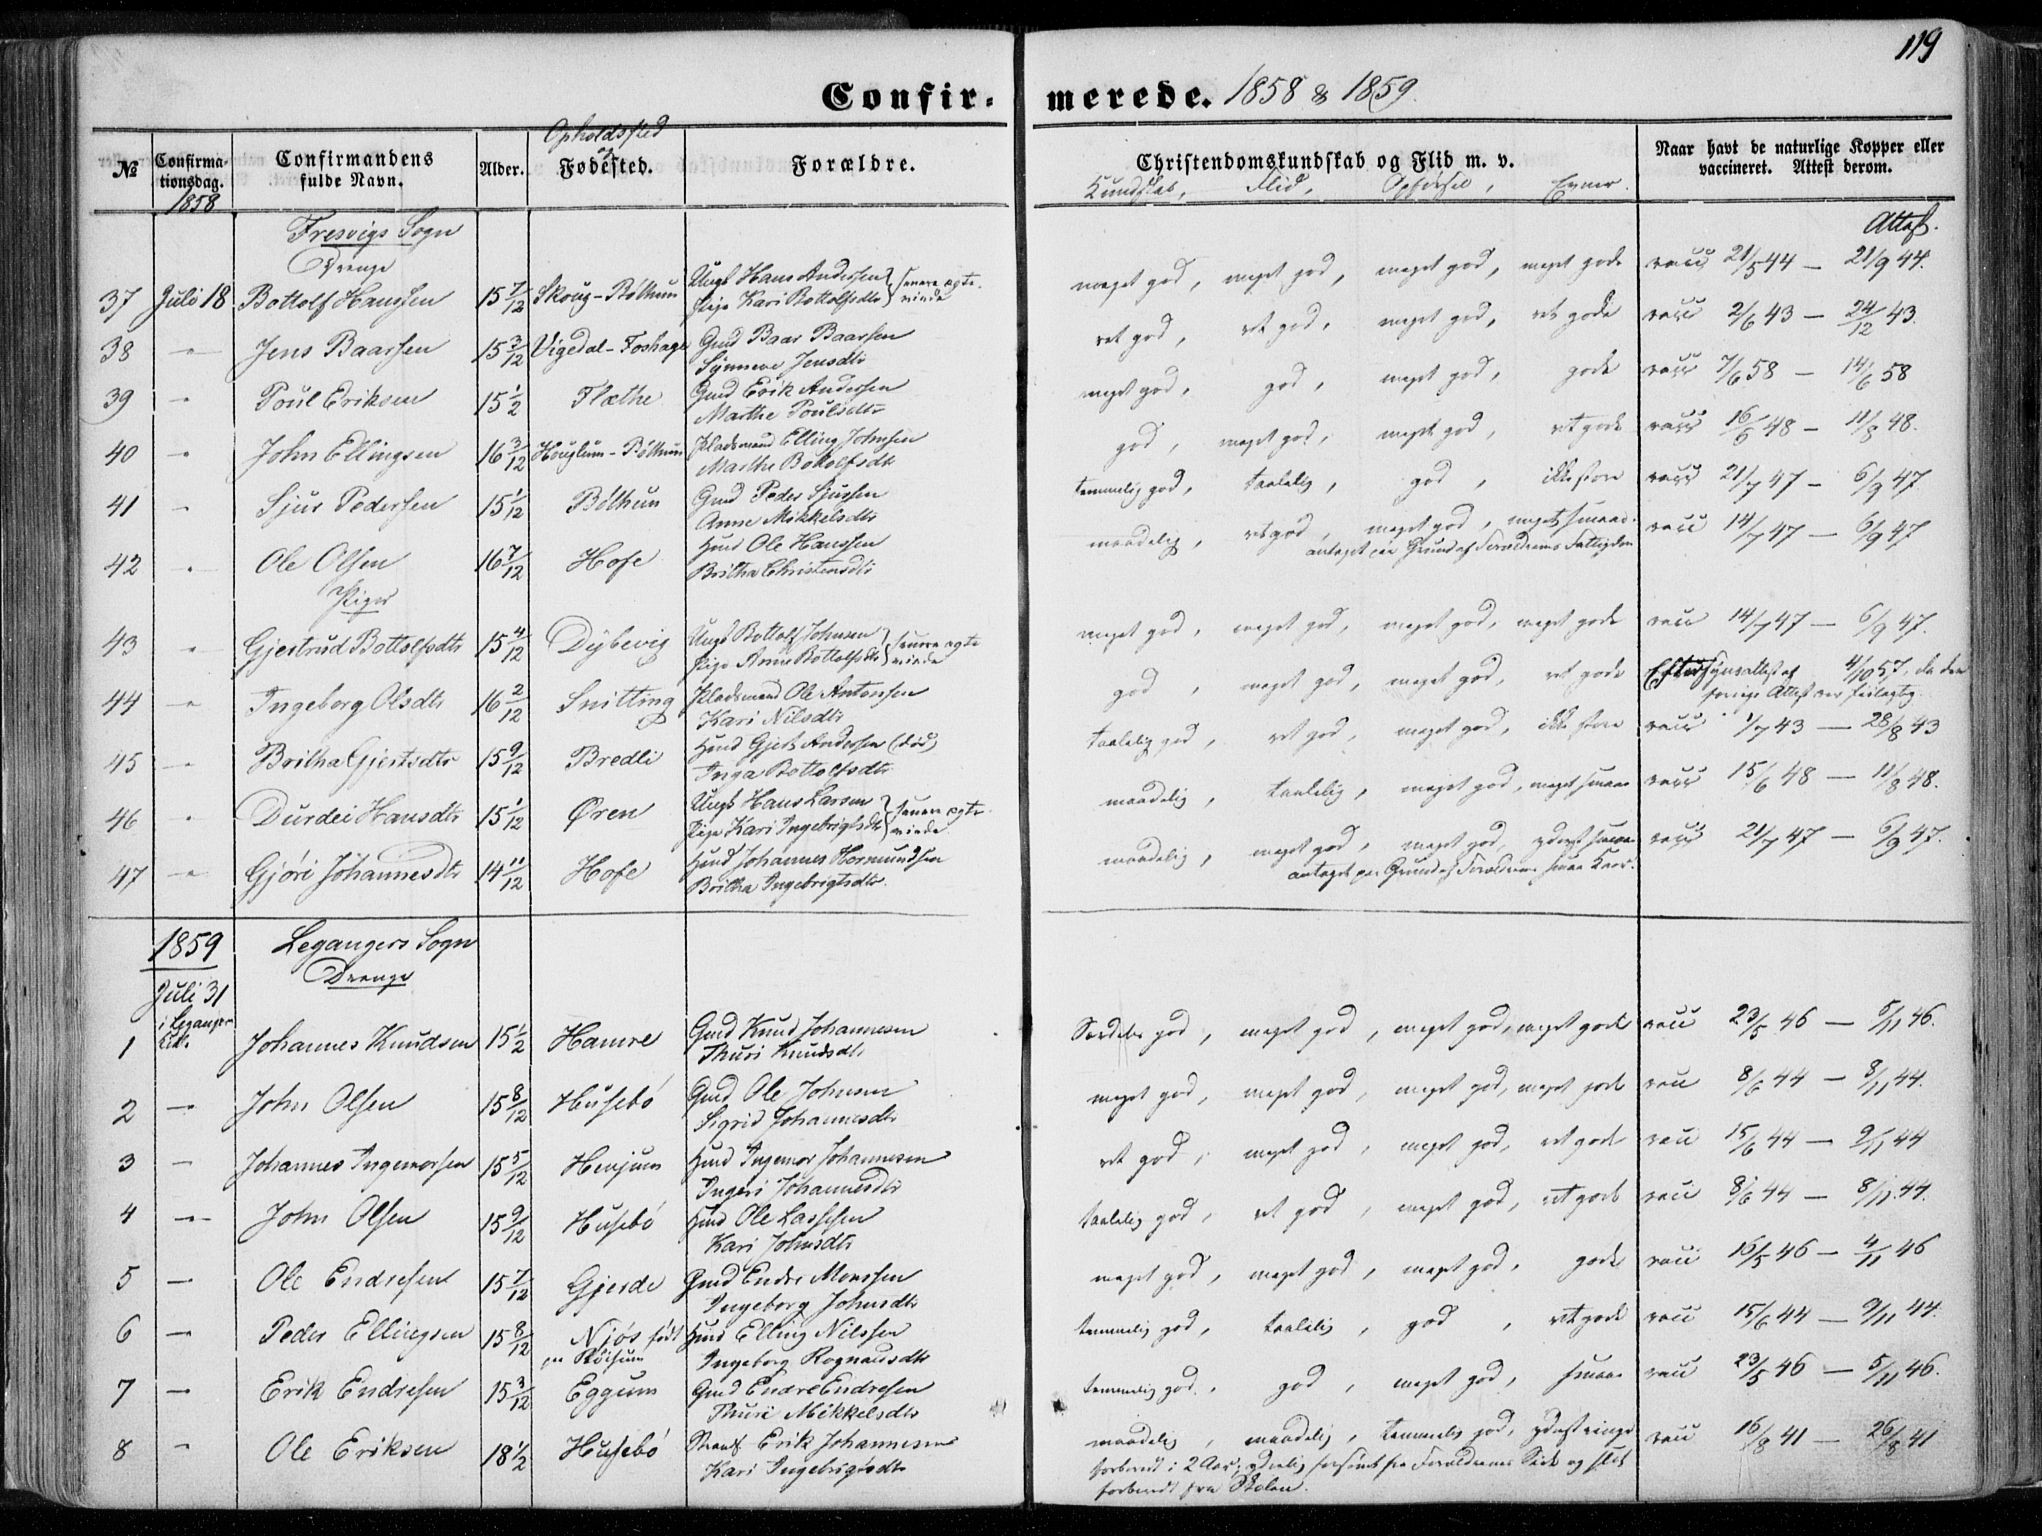 119
Confir-merede. 1858 & 1859.
№ Confirmationsdag. Confirmandens fulde Navn. Alder. Opholdssted og Fødested. Forældre. Christendomskundskab og Flid m. v. Naar havt de naturlige Kopper eller vaccineret. Attest derom.
1858 Kundskab, Flid, Opførsel, Evner.
Fresvigs Sogn Attest.
Drenge
37 Juli 18 Bottolf Hanssen 15 7/12 Skoug-Böthun Ungk Hans Andersen Pige Kari Bottolfsdtr senere egteviede meget god, meget god, meget god, meget gode vacc 21/5 44 — 21/9 44.
38 — Jens Baarsen 15 3/12 Vigedal-Foshage Gmd Baar Baarsen Synneve Jensdtr ret god, ret god, meget god, ret gode vacc 2/6 43 — 24/12 43.
39 — Poul Eriksen 15 1/2 Flæthe Gmd Erik Andersen Marthe Poulsdtr meget god, god, meget god, gode vacc 7/6 58 — 14/6 58
40 — John Ellingsen 16 3/12 Houglum-Böthun Pladsmand Elling Johnsen Marthe Bottolfsdtr god, meget god, meget god, ret gode vacc 16/6 48 — 11/8 48.
41 — Sjur Pedersen 15 1/12 Böthun Gmd Peder Sjursen Anne Mikkelsdtr temmelig god, taalelig, god, ikke store vacc 21/7 47 — 6/9 47
42 — Ole Olsen 16 7/12 Hofe Hmd Ole Hanssen Britha Christensdtr maadelig, ret god, meget god, meget smaae. vacc 14/7 47 — 6/9 47
antaget paa Grund af Forældrenes Fattigdom
Piger
43 — Gjertrud Bottolfsdtr 15 4/12 Dybevig Ungk Bottolf Johnsen Pige Anna Bottolfsdtr senere egteviede meget god, meget god, meget god, meget gode vacc 14/7 47 — 6/9 47.
44 — Ingeborg Olsdtr 16 2/12 Snitting Pladsmand Ole Antonsen Kari Nilsdtr god, meget god, meget god, ret gode Eftersynsattest af 4/10 57, da den forrige Attest var feilagtig.
45 — Britha Gjertsdtr 15 9/12 Bredli Hmd Gjert Andersen (död) Inga Bottolfsdtr taalelig god, ret god, meget god, ikke store vacc 1/7 43 — 28/8 43
46 — Durdei Hansdtr 15 1/12 Øren Ungk Hans Larsen Pige Kari Ingebrigtsdtr senere egteviede maadelig, taalelig, meget god, meget smaae vacc 15/6 48 — 11/8 48.
47 — Gjöri Johannesdtr 14 11/12 Hofe Hmd Johannes Hermundsen Britha Ingebrigtsdtr. maadelig, meget god, meget god, yderst smaae vacc 21/7 47 — 6/9 47.
antaget paa Grund af Forældrenes smaae Kaar.
1859 Legangers Sogn
Drenge
Juli 31
i Leganger Kirk.
1 Johannes Knudsen 15 1/2 Hamre Gmd Knud Johannesen Thuri Knudsdtr Særdeles god, meget god, meget god, meget gode vacc 23/5 46 — 5/11 46.
2 — John Olsen 15 8/12 Husebö Gmd Ole Johnsen Sigrid Johannesdtr meget god, meget god, meget god, meget gode vacc 8/6 44 — 8/11 44.
3 — Johannes Ingemorsen 15 5/12 Henjum Hmd Ingemor Johannesen Ingeri Johannesdtr ret god, meget god, meget god, ret gode vacc 15/6 44 — 9/11 44
4 — John Olsen 15 9/12 Husebö Hmd Ole Lassesen Kari Johnsdtr taalelig god, ret god, meget god, ret gode vacc 8/6 44 — 8/11 44.
5 — Ole Endresen 15 7/12 Gjerde Gmd Endre Monssen Ingeborg Johnsdtr meget god, meget god, meget god, gode vacc 16/5 46 — 4/11 46
6 — Peder Ellingsen 15 8/12 Njös født paa Röisum Hmd Elling Nilssen Ingeborg Rognaldsdtr temmelig god, taalelig, god, ret gode vacc 15/6 44 — 9/11 44.
7 — Erik Endresen 15 3/12 Eggum Gmd Endre Endresen Thuri Mikkelsdtr temmelig god, god, meget god, smaae vacc 23/5 46 — 5/11 46.
8 — Ole Eriksen 18 1/2 Husebö Erik Johannesen Kari Ingebrigtsdtr maadelig, maadelig, temmelig god, yderst ringe vacc 16/8 41 — 26/8 41
forberedt i 2 Aar; yderlig forsömt fra Forældrenes Side og slet
forberedt fra Skolen.